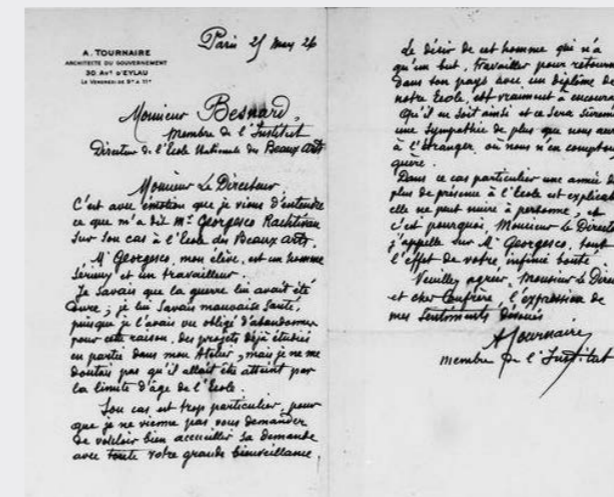 A. TOURNAIRE
ARCHITECTE DU GOUVERNEMENT
30 AVE D'EYLAU
LE VENDREDI DE 9H A 11H
Paris 25 May 26
Monsieur Besnard,
membre de l'Institut
Directeur de l'Ecole Nationale des Beaux Arts
Monsieur Le Directeur,
C'est avec l'émotion que je viens d'entendre
ce que m'a dit Mr Georgesco
sur son cas à l'Ecole des Beaux Arts.
Mr Georgesco, mon élève, est un homme
sérieux et un travailleur.
Je savais que la guerre lui avait été
dure ; je lui savais mauvaise santé,
puisque je l'avais vu obligé d'abandonner
pour cette raison, des projets déjà étudiés
en partie dans mon Atelier, mais je ne me
doutais pas qu'il allait être atteint par
la limite d'âge de l'Ecole.
Son cas est trop particulier, pour
que je ne vienne pas vous demander
de vouloir bien accueillir sa demande
avec toute votre grande bienveillance.
Le désir de cet homme qui n'a
qu'un but, travailler pour retourn
dans son pays avec un diplôme de
notre Ecole, est vraiment à encoura
Qu'il en soit ainsi et ce sera
une sympathie de plus que nous
à l'étranger, où nous n'en compto
guère.
Dans ce cas particulier une année d
plus de présence à l'école est explica
elle ne peut nuire à personne, et
c'est pourquoi, Monsieur le Direct
j'appelle sur Mr Georgesco, tout
l'effet de votre infinie bonté
Veuillez agréer, Monsieur le Dire
et cher Confrère, l'expression de
mes sentiments dévoués
A Tournaire
membre de l'Institut